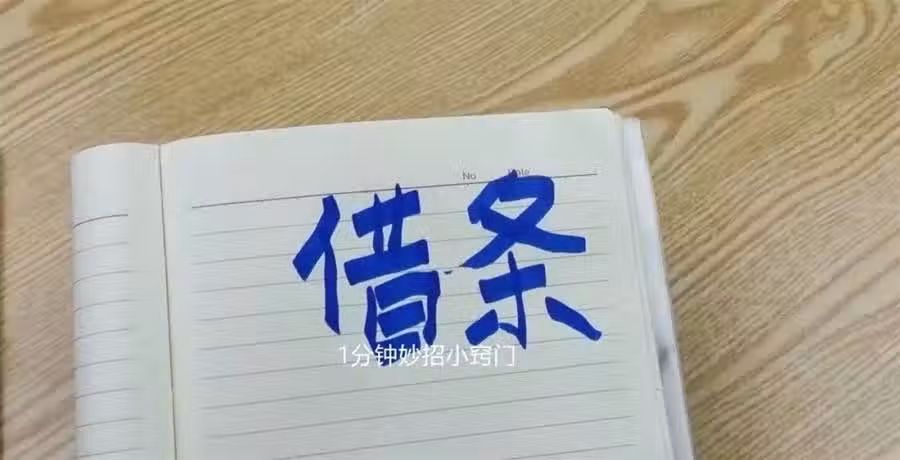 No
借条
1分钟妙招小窍门